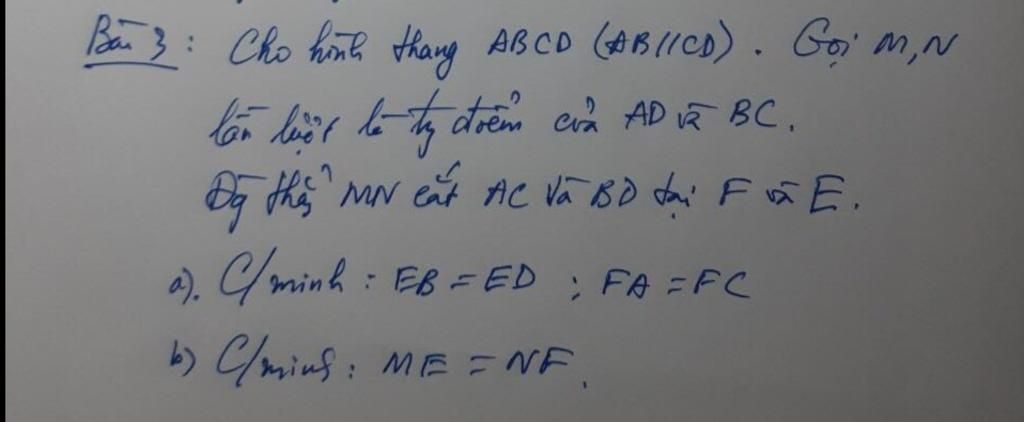 Bài 3 : Cho hình thang ABCD (AB//CD). Gọi M,N
lần lượt là tg điểm của AD và BC.
Đg thẳg MN cắt AC và BD tại F và E.
a). C/minh : EB = ED ; FA = FC
b) C/minh : ME = NF.